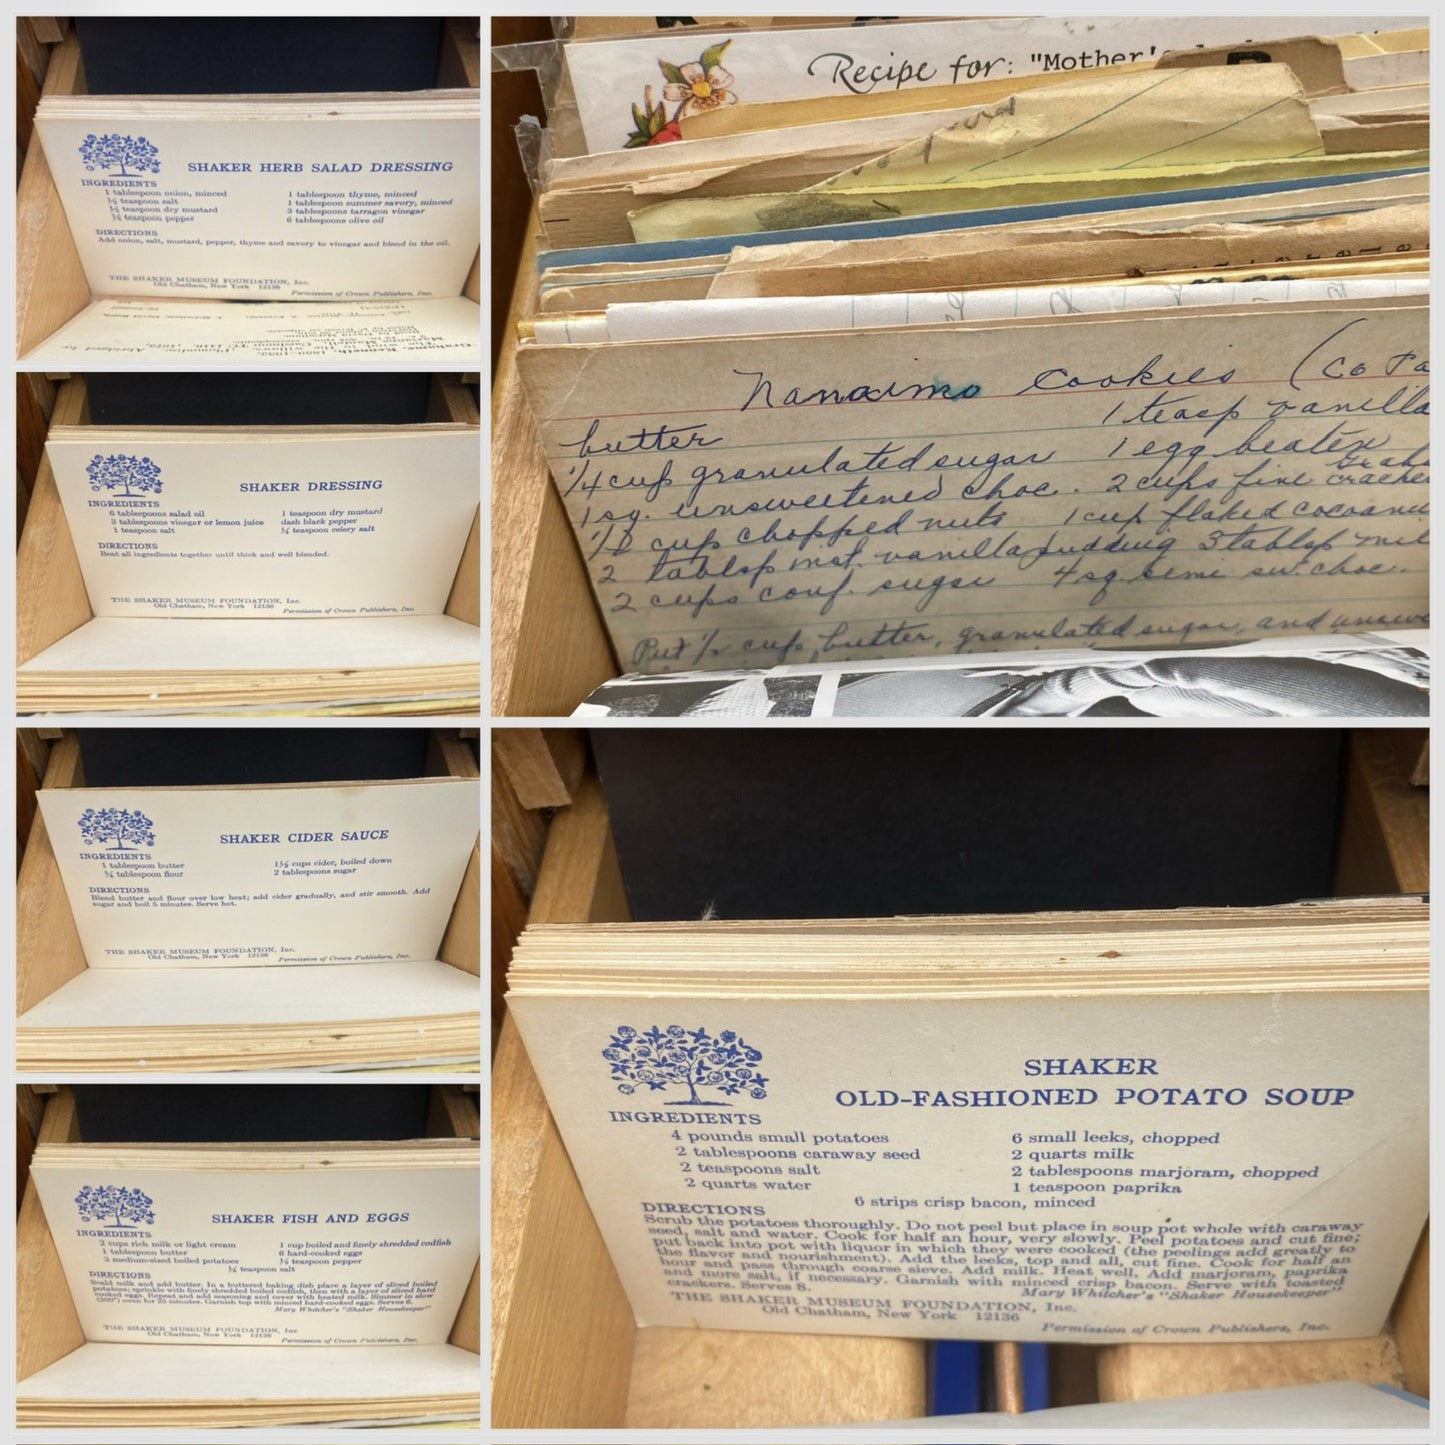 SHAKER HERB SALAD DRESSING
INGREDIENTS
1 tablespoon onion, minced
½ teaspoon salt
½ teaspoon dry mustard
teaspoon pepper
1 tablespoon thyme, minced
1 tablespoon summer savory, minced
3 tablespoons tarragon vinegar
6 tablespoons olive oil
DIRECTIONS
Add onion, salt, mustard, pepper, thyme and savory to vinegar and blend in the oil.
THE SHAKER MUSEUM FOUNDATION, Inc.
Old Chatham, New York 12136
Permission of Crown Publishers, Inc.
SHAKER DRESSING
INGREDIENTS
6 tablespoons salad oil
3 tablespoons vinegar or lemon juice
1 teaspoon salt
1 teaspoon dry mustard
dash black pepper
¼ teaspoon celery salt
DIRECTIONS
Beat all ingredients together until thick and well blended.
THE SHAKER MUSEUM FOUNDATION, Inc.
Old Chatham, New York 12136
Permission of Crown Publishers, Inc.
SHAKER CIDER SAUCE
INGREDIENTS
1 tablespoon butter
¾ tablespoon flour
1½ cups cider, boiled down
2 tablespoons sugar
DIRECTIONS
Blend butter and flour over low heat; add cider gradually, and stir smooth. Add
sugar and boil 5 minutes. Serve hot.
THE SHAKER MUSEUM FOUNDATION, Inc.
Old Chatham, New York 12136
Permission of Crown Publishers, Inc.
SHAKER FISH AND EGGS
INGREDIENTS
2 cups rich milk or light cream
1 tablespoon butter
3 medium-sized boiled potatoes
1 cup boiled and finely shredded codfish
6 hard-cooked eggs
teaspoon pepper
teaspoon salt
DIRECTIONS
Scald milk and add butter. In a buttered baking dish place a layer of sliced boiled
potatoes; sprinkle with finely shredded boiled codfish, then with a layer of sliced hard
cooked eggs. Repeat and add seasoning and cover with heated milk. Simmer in slow
(300°) oven for 25 minutes. Garnish top with minced hard-cooked eggs. Serves 6.
Mary Whitcher's "Shaker Housekeeper"
THE SHAKER MUSEUM FOUNDATION, Inc
Old Chatham, New York 12136
Permission of Crown Publishers, Inc.
Recipe for: "Mother's
Nanaimo Cookies (Co
butter
1 teasp vanilla
¼ cup granulated sugar 1 egg beaten
1 sq. unsweetened choc. 2 cups fine Graham cracker
½ cup chopped nuts 1 cup flaked cocoanut
2 tablsp inst. vanilla pudding 3 tablsp mil
2 cups conf. sugar 4 sq. semi sw. choc.
Put ½ cup butter, granulated sugar, and unswe
SHAKER
OLD-FASHIONED POTATO SOUP
INGREDIENTS
4 pounds small potatoes
2 tablespoons caraway seed
2 teaspoons salt
2 quarts water
6 small leeks, chopped
2 quarts milk
2 tablespoons marjoram, chopped
1 teaspoon paprika
6 strips crisp bacon, minced
DIRECTIONS
Scrub the potatoes thoroughly. Do not peel but place in soup pot whole with caraway
seed, salt and water. Cook for half an hour, very slowly. Peel potatoes and cut fine;
put back into pot with liquor in which they were cooked (the peelings add greatly to
the flavor and nourishment). Add the leeks, top and all, cut fine. Cook for half an
hour and pass through coarse sieve. Add milk. Heat well. Add marjoram, paprika
and more salt, if necessary. Garnish with minced crisp bacon. Serve with toasted
crackers. Serves 8.
Mary Whitcher's "Shaker Housekeeper"
THE SHAKER MUSEUM FOUNDATION, Inc.
Old Chatham, New York 12136
Permission of Crown Publishers, Inc.